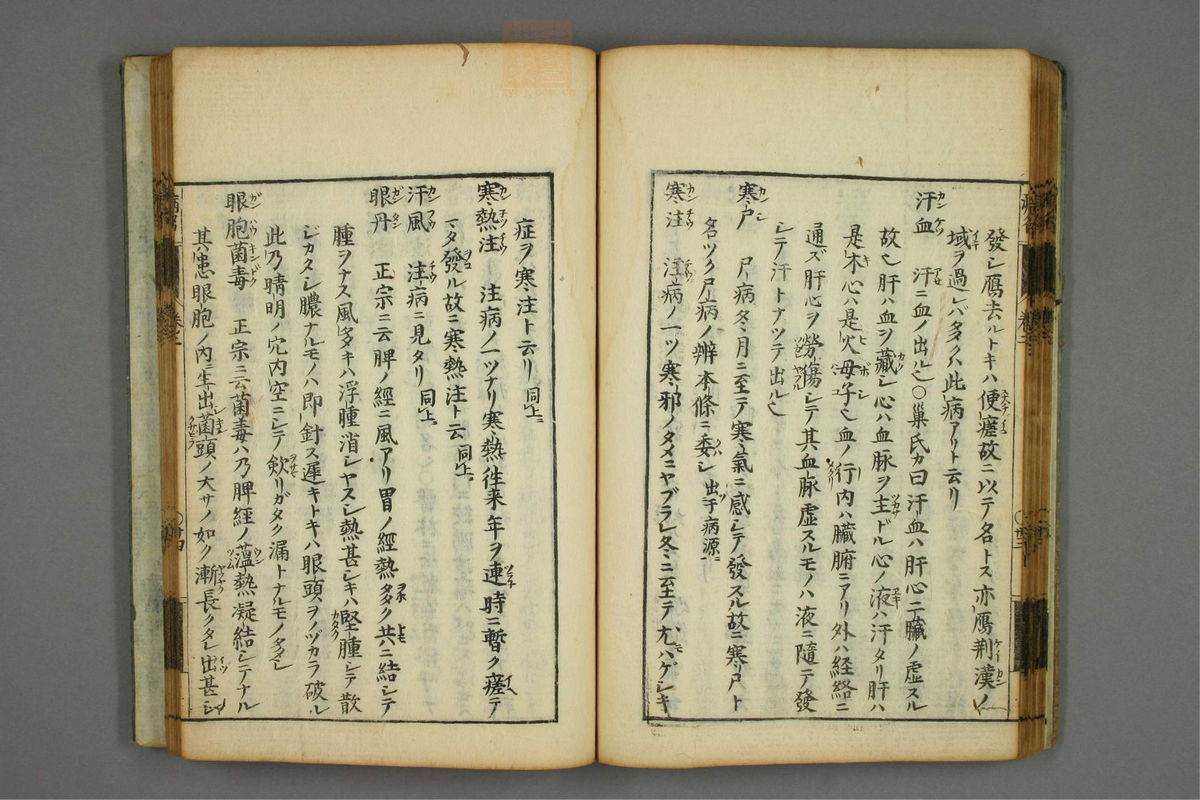 發シ鴈去ルトキハ便瘥故ニ以テ名トス亦鴈荆漢ノ
域ヲ過レバ多クハ此病アリト云リ
汗血 汗ニ血ノ出ル也〇巢氏カ曰汗血ハ肝心二臓ノ虚スル
故也肝ハ血ヲ藏シ心ハ血脉ヲ主ドル心ノ液ハ汗タリ肝ハ
是木心ハ是火母子也血ノ行内ハ臓腑ニアリ外ハ経絡ニ
通ズ肝心ヲ勞傷シテ其血脉虚スルモノハ液ニ隨テ發
シテ汗トナツテ出ル也
寒尸 尸病冬月ニ至テ寒氣ニ感シテ發スル故ニ寒尸ト
名ツク尸病ノ辨本條ニ委シ 出于病源ニ
寒注 注病ノ一ツ寒邪ノタメニヤブラレ冬ニ至テ尤ハゲシキ
症ヲ寒注ト云リ 同上ニ
寒熱注 注病ノ一ツナリ寒熱徃来年ヲ連時ニ暫ク瘥テ
マタ發ル故ニ寒熱注ト云 同上ニ
汗風 注病ニ見タリ 同上ニ
眼丹 正宗ニ云脾ノ經ニ風アリ胃ノ經熱多ク共ニ結シテ
腫ヲナス風多キハ浮腫消シヤスシ熱甚シキハ堅腫シテ散
ジカタシ膿ナルモノハ即針ス遲キトキハ眼頭ヲノヅカラ破ル
此乃晴明ノ穴内空ニシテ歛リガタク漏トナルモノ多シ
眼胞菌毒 正宗ニ云菌毒ハ乃脾經ノ薀熱凝結シテナル
其患眼胞ノ内ニ生出菌頭ノ大サノ如ク漸長ク多シ出甚シ